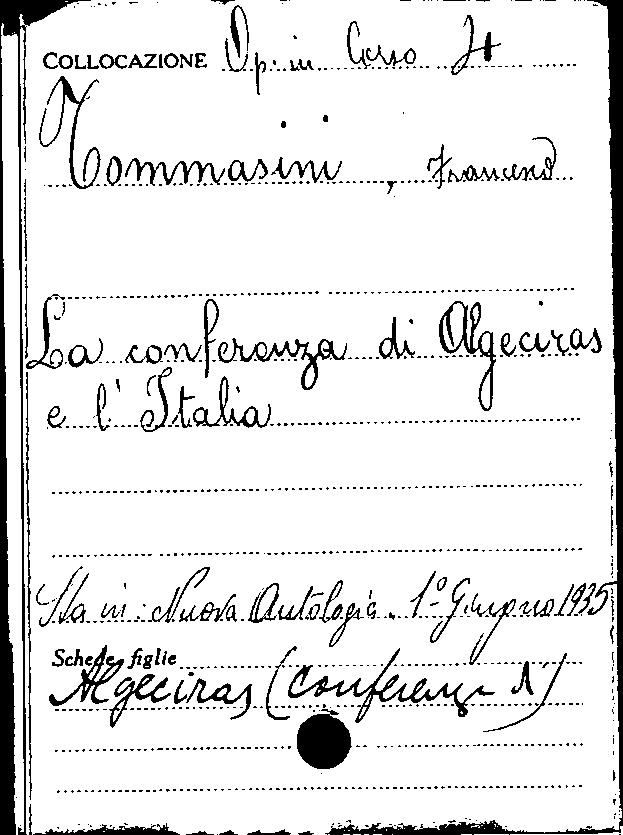 COLLOCAZIONE Op. in Corso It
Tommasini, Francesco
La conferenza di Algeciras
e l'Italia
Sta in: Nuova Antologia. 1º Giugno 1935
Schede figlie
Algeciras (Conferenza d')